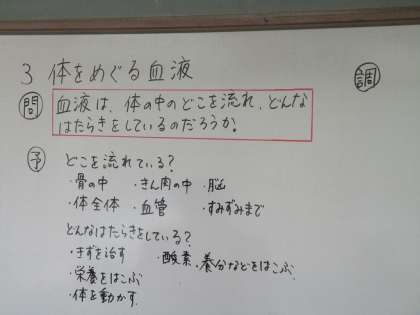 3 体をめぐる血液
調
問 血液は、体の中のどこを流れ、どんな
はたらきをしているのだろうか。
予 どこを流れている?
・骨の中 ・きん肉の中 ・脳
・体全体 ・血管 ・すみずみまで
どんなはたらきをしている?
・きずを治す ・酸素・養分などをはこぶ
・栄養をはこぶ
・体を動かす